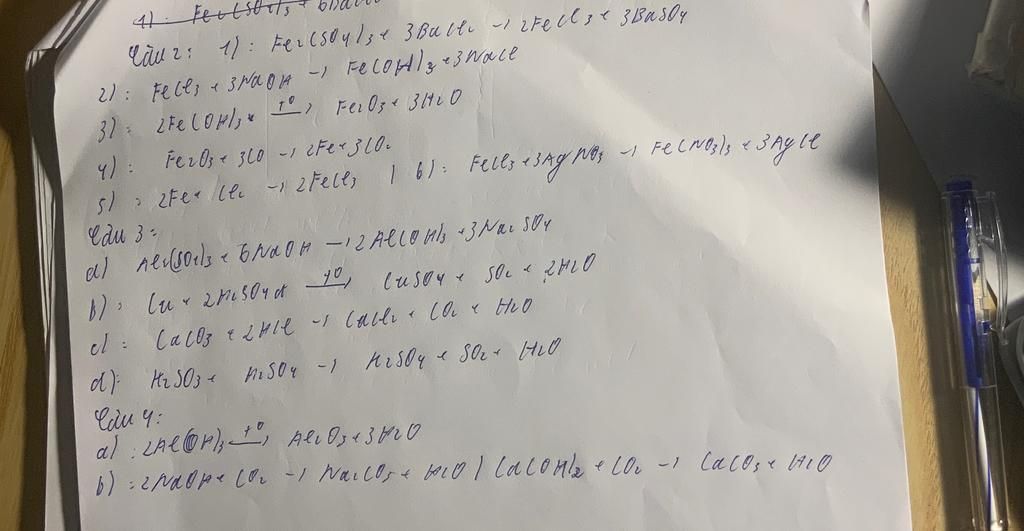 1): Fe2(SO4)3 + 6Na
Câu 2: 1): Fe2(SO4)3 + 3BaCl2 → 2FeCl3 + 3BaSO4
2): FeCl3 + 3NaOH → Fe(OH)3 + 3NaCl
3): 2Fe(OH)3 t° → Fe2O3 + 3H2O
4): Fe2O3 + 3CO → 2Fe + 3CO2
5): 2Fe + Cl2 → 2FeCl3 | 6): FeCl3 + 3AgNO3 → Fe(NO3)3 + 3AgCl
Câu 3:
a) Al2(SO4)3 + 6NaOH → 2Al(OH)3 + 3Na2SO4
b): Cu + 2H2SO4đ t° → CuSO4 + SO2 + 2H2O
c): CaCO3 + 2HCl → CaCl2 + CO2 + H2O
d): H2SO3 + H2SO4 → H2SO4 + SO2 + H2O
Câu 4:
a): 2Al(OH)3 t° → Al2O3 + 3H2O
b): 2NaOH + CO2 → Na2CO3 + H2O | Ca(OH)2 + CO2 → CaCO3 + H2O